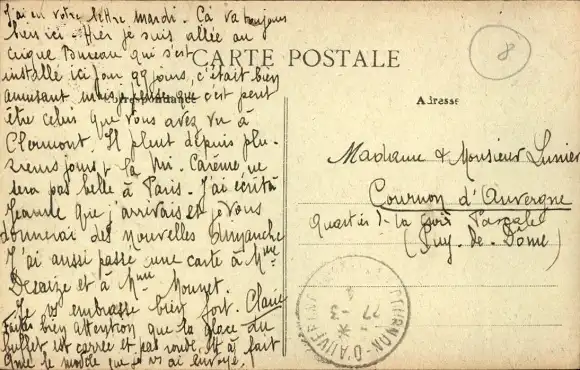 J'ai eu votre lettre mardi. Ça va toujours
bien ici. Hier je suis allée au
Cirque Bureau qui s'est
installé ici pour qq jours, c'était bien
amusant mais je pense que c'est peut
être celui que vous avez vu à
Clermont. Il pleut depuis plu-
sieurs jours, la Mi-Carême ne
sera pas belle à Paris. J'ai écrit à
Jeanne que j'arrivais et je vous
donnerai des nouvelles dimanche
J'ai aussi passé une carte à Mme
Desaize et à Mme Monnet.
Je vs embrasse bien fort. Claire
Faites bien attention que la glace du
buffet est carrée et pas ronde, tt à fait
que le modèle que je vs ai envoyé.
CARTE POSTALE
Correspondance
Adresse
8
Madame & Monsieur Lusnier
Cournon d'Auvergne
Quartier de la Croix Pascale
(Puy-de-Dôme)
COURNON-D'AUVERGNE